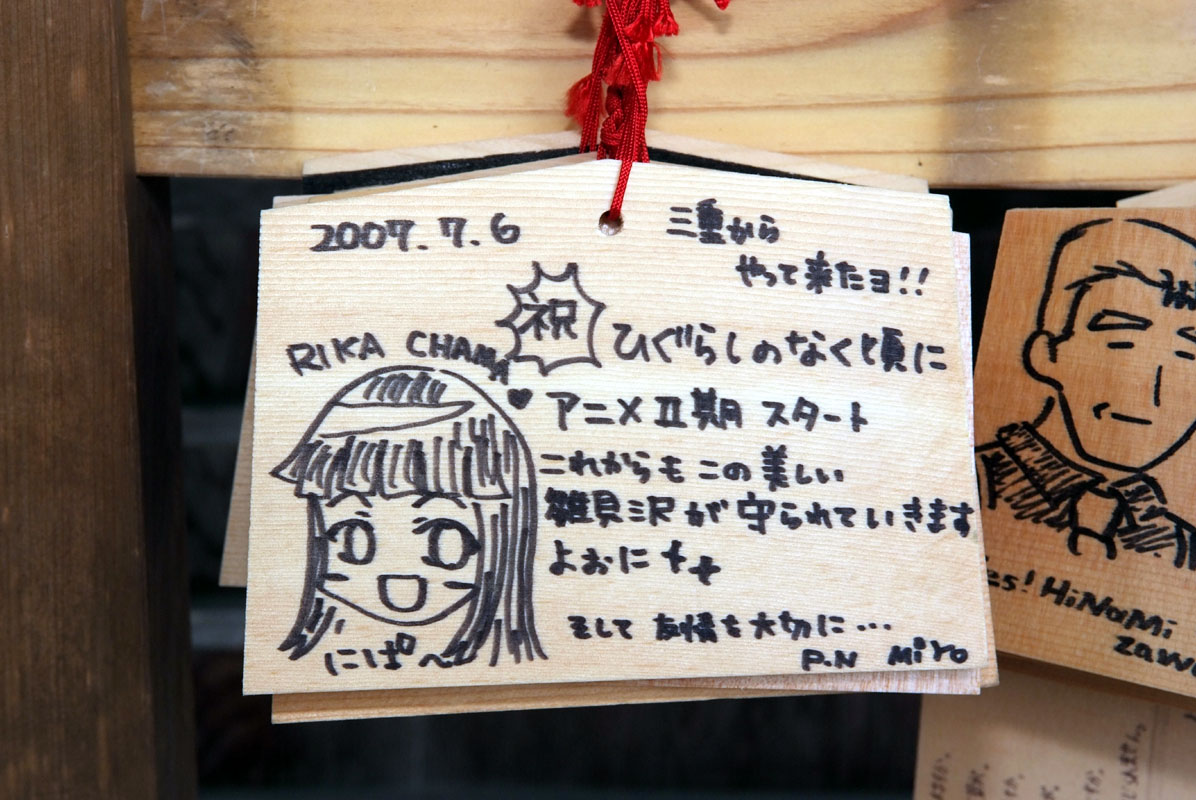 2007.7.6
三重から
やって来たヨ!!
祝
ひぐらしのなく頃に
RIKA CHAMA
♥ アニメⅡ期 スタート
これからもこの美しい
雛見沢が守られていきます
よおに
そして 友情も大切に…
P.N Miro
にぱ〜
es! HiNaMi
Zawa